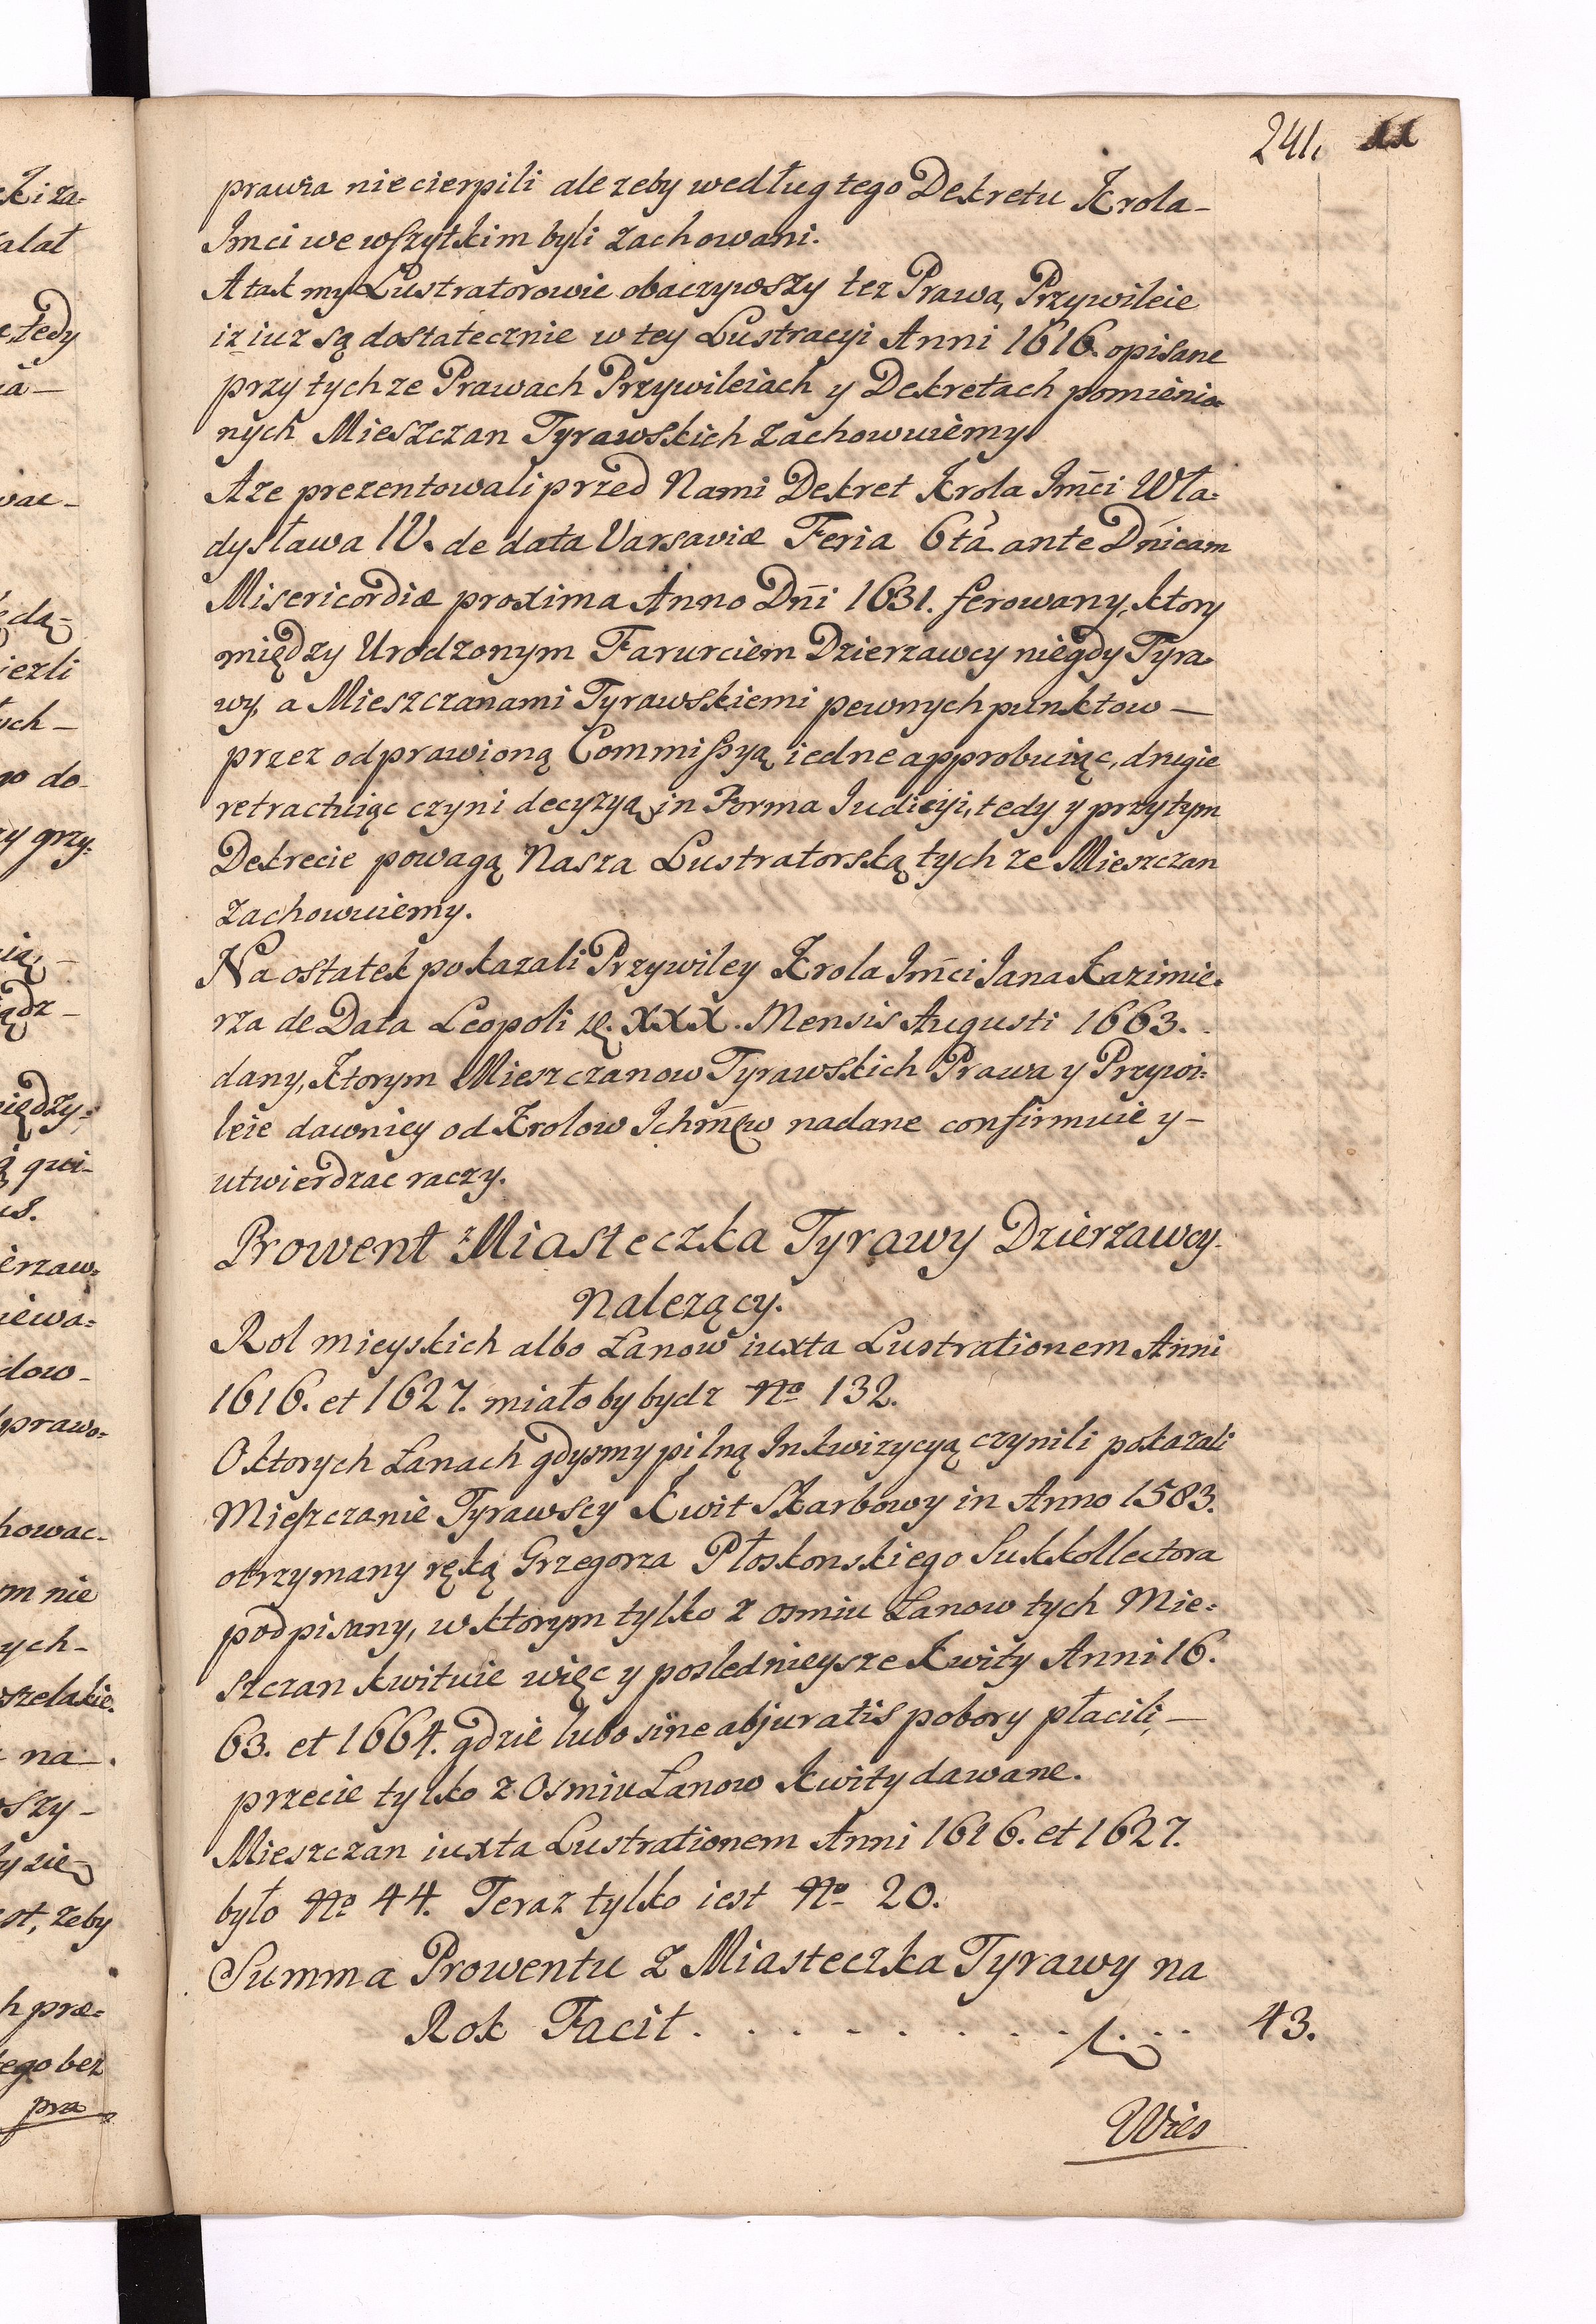 241. 11
prawia niecierpili ale zeby według tego Dekretu Krola –
Jmci we wszytkim byli zachowani.
A tak my Lustratorowie obaczywszy tez Prawa, Przywileie
iz iuz są dostatecznie w tey Lustracyi Anni 1616. opisane
przy tychze Prawach Przywileiach y Dekretach pomienio=
nych Mieszczan Tyrawskich zachowuiemy.
A ze prezentowali przed Nami Dekret Krola Jm̄ci Wła=
dysława IV. de data Varsaviæ Feria 6tâ ante Dn̄icam
Misericordiæ proxima Anno Dn̄i 1631. ferowany, ktory
między Urodzonym Farurciem Dzierzawcy niegdy Tyra=
wy, a Mieszczanami Tyrawskiemi pewnych punktow –
przez odprawioną Commissyą iedne approbuiąc, drugie
retractuiąc czyni decyzyą in Forma Iudicyi, tedy y przy tym
Dekrecie powagą Nasza Lustratorską tych ze Mieszczan
zachowuiemy.
Na ostatek pokazali Przywiley Krola Jm̄ci Jana Kazimie=
rza de Data Leopoli D. XXX. Mensis Augusti 1663.
dany, Ktorym Mieszczanow Tyrawskich Prawa y Przywi=
leie dawniey od Krolow Ichm̄cw nadane confirmuie y –
utwierdzac raczy.
Prowent z Miasteczka Tyrawy Dzierzawcy
Nalezący.
Rol mieyskich albo Łanow iuxta Lustrationem Anni
1616. et 1627. miało by bydz No 132.
O ktorych Łanach gdysmy pilną Inkwizycyą czynili pokazali
Mieszczanie Tyrawscy Kwit Skarbowy in Anno 1583.
otrzymany ręką Grzegorza Płoskonskiego Sukkollectora
podpisany, w ktorym tylko z osmiu Łanow tych Mie=
szczan kwituie więc y poslednieysze Kwity Anni 16.
63. et 1664. gdzie lubo sine abjuratis pobory płacili, –
przecie tylko z Osmiu Łanow Kwity dawane.
Mieszczan iuxta Lustrationem Anni 1616. et 1627.
było No 44. Teraz tylko iest No 20.
Summa Prowentu z Miasteczka Tyrawy na
Rok Facit . . . . . . . . . . f. . . 43.
Wies